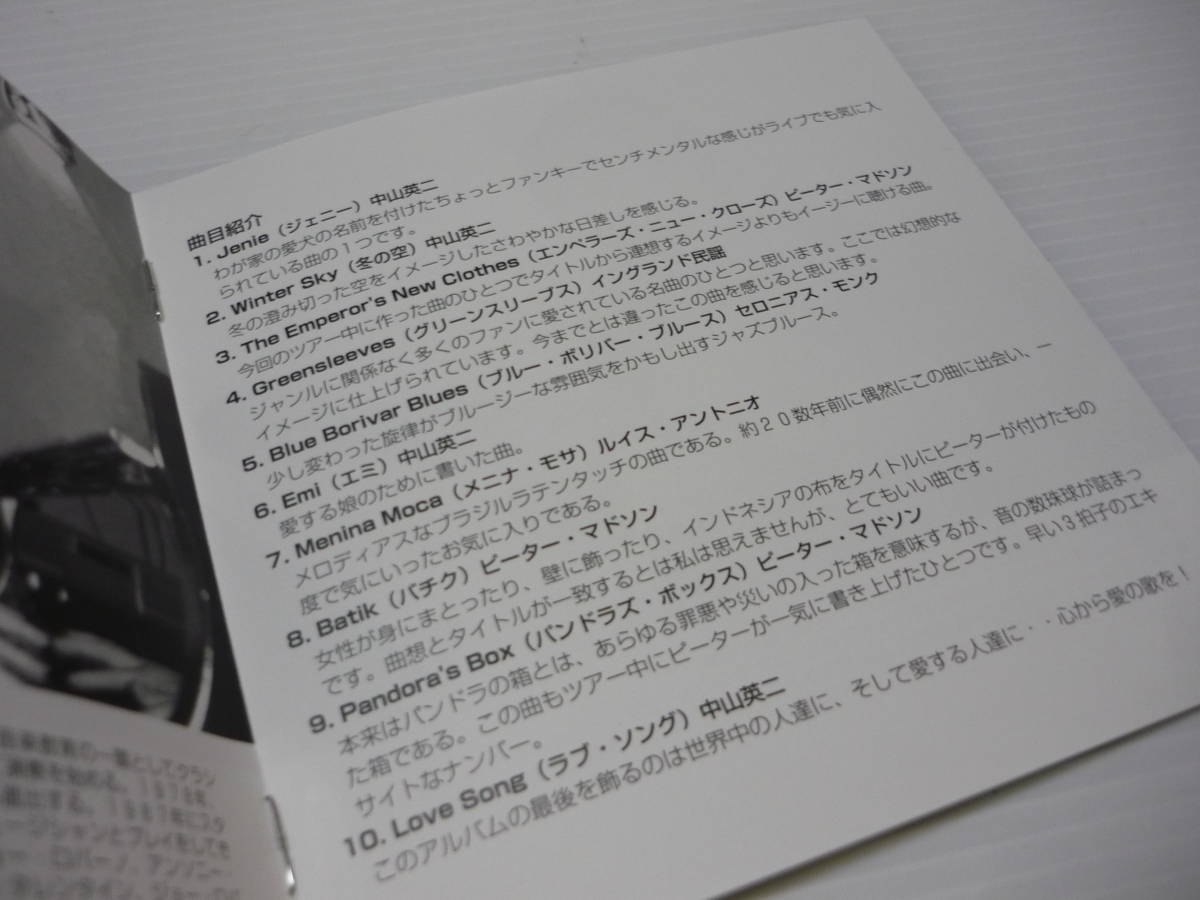 曲目紹介
1. Jenie（ジェニー）中山英二
わが家の愛犬の名前を付けたちょっとファンキーでセンチメンタルな感じがライブでも気に入
られている曲の1つです。
2. Winter Sky（冬の空）中山英二
冬の澄み切った空をイメージしたさわやかな日差しを感じる。
3. The Emperor's New Clothes（エンペラーズ・ニュー・クローズ）ピーター・マドソン
今回のツアー中に作った曲のひとつでタイトルから連想するイメージよりもイージーに聴ける曲。
4. Greensleeves（グリーンスリーブス）イングランド民謡
ジャンルに関係なく多くのファンに愛されている名曲のひとつと思います。ここでは幻想的な
イメージに仕上げられています。今までとは違ったこの曲を感じると思います。
5. Blue Borivar Blues（ブルー・ボリバー・ブルース）セロニアス・モンク
少し変わった旋律がブルージーな雰囲気をかもし出すジャズブルース。
6. Emi（エミ）中山英二
愛する娘のために書いた曲。
7. Menina Moca（メニナ・モサ）ルイス・アントニオ
メロディアスなブラジルラテンタッチの曲である。約20数年前に偶然にこの曲に出会い、一
度で気にいったお気に入りである。
8. Batik（バチク）ピーター・マドソン
女性が身にまとったり、壁に飾ったり、インドネシアの布をタイトルにピーターが付けたもの
です。曲想とタイトルが一致するとは私は思えませんが、とてもいい曲です。
9. Pandora's Box（パンドラズ・ボックス）ピーター・マドソン
本来はパンドラの箱とは、あらゆる罪悪や災いの入った箱を意味するが、音の数珠球が詰まっ
た箱である。この曲もツアー中にピーターが一気に書き上げたひとつです。早い3拍子のエキ
サイトなナンバー。
10. Love Song（ラブ・ソング）中山英二
このアルバムの最後を飾るのは世界中の人達に、そして愛する人達に・・心から愛の歌を！
音楽教育の一環としてクラシ
演奏を始める。1978年、
進出する。1987年にスタ
ュージシャンとプレイをしてそ